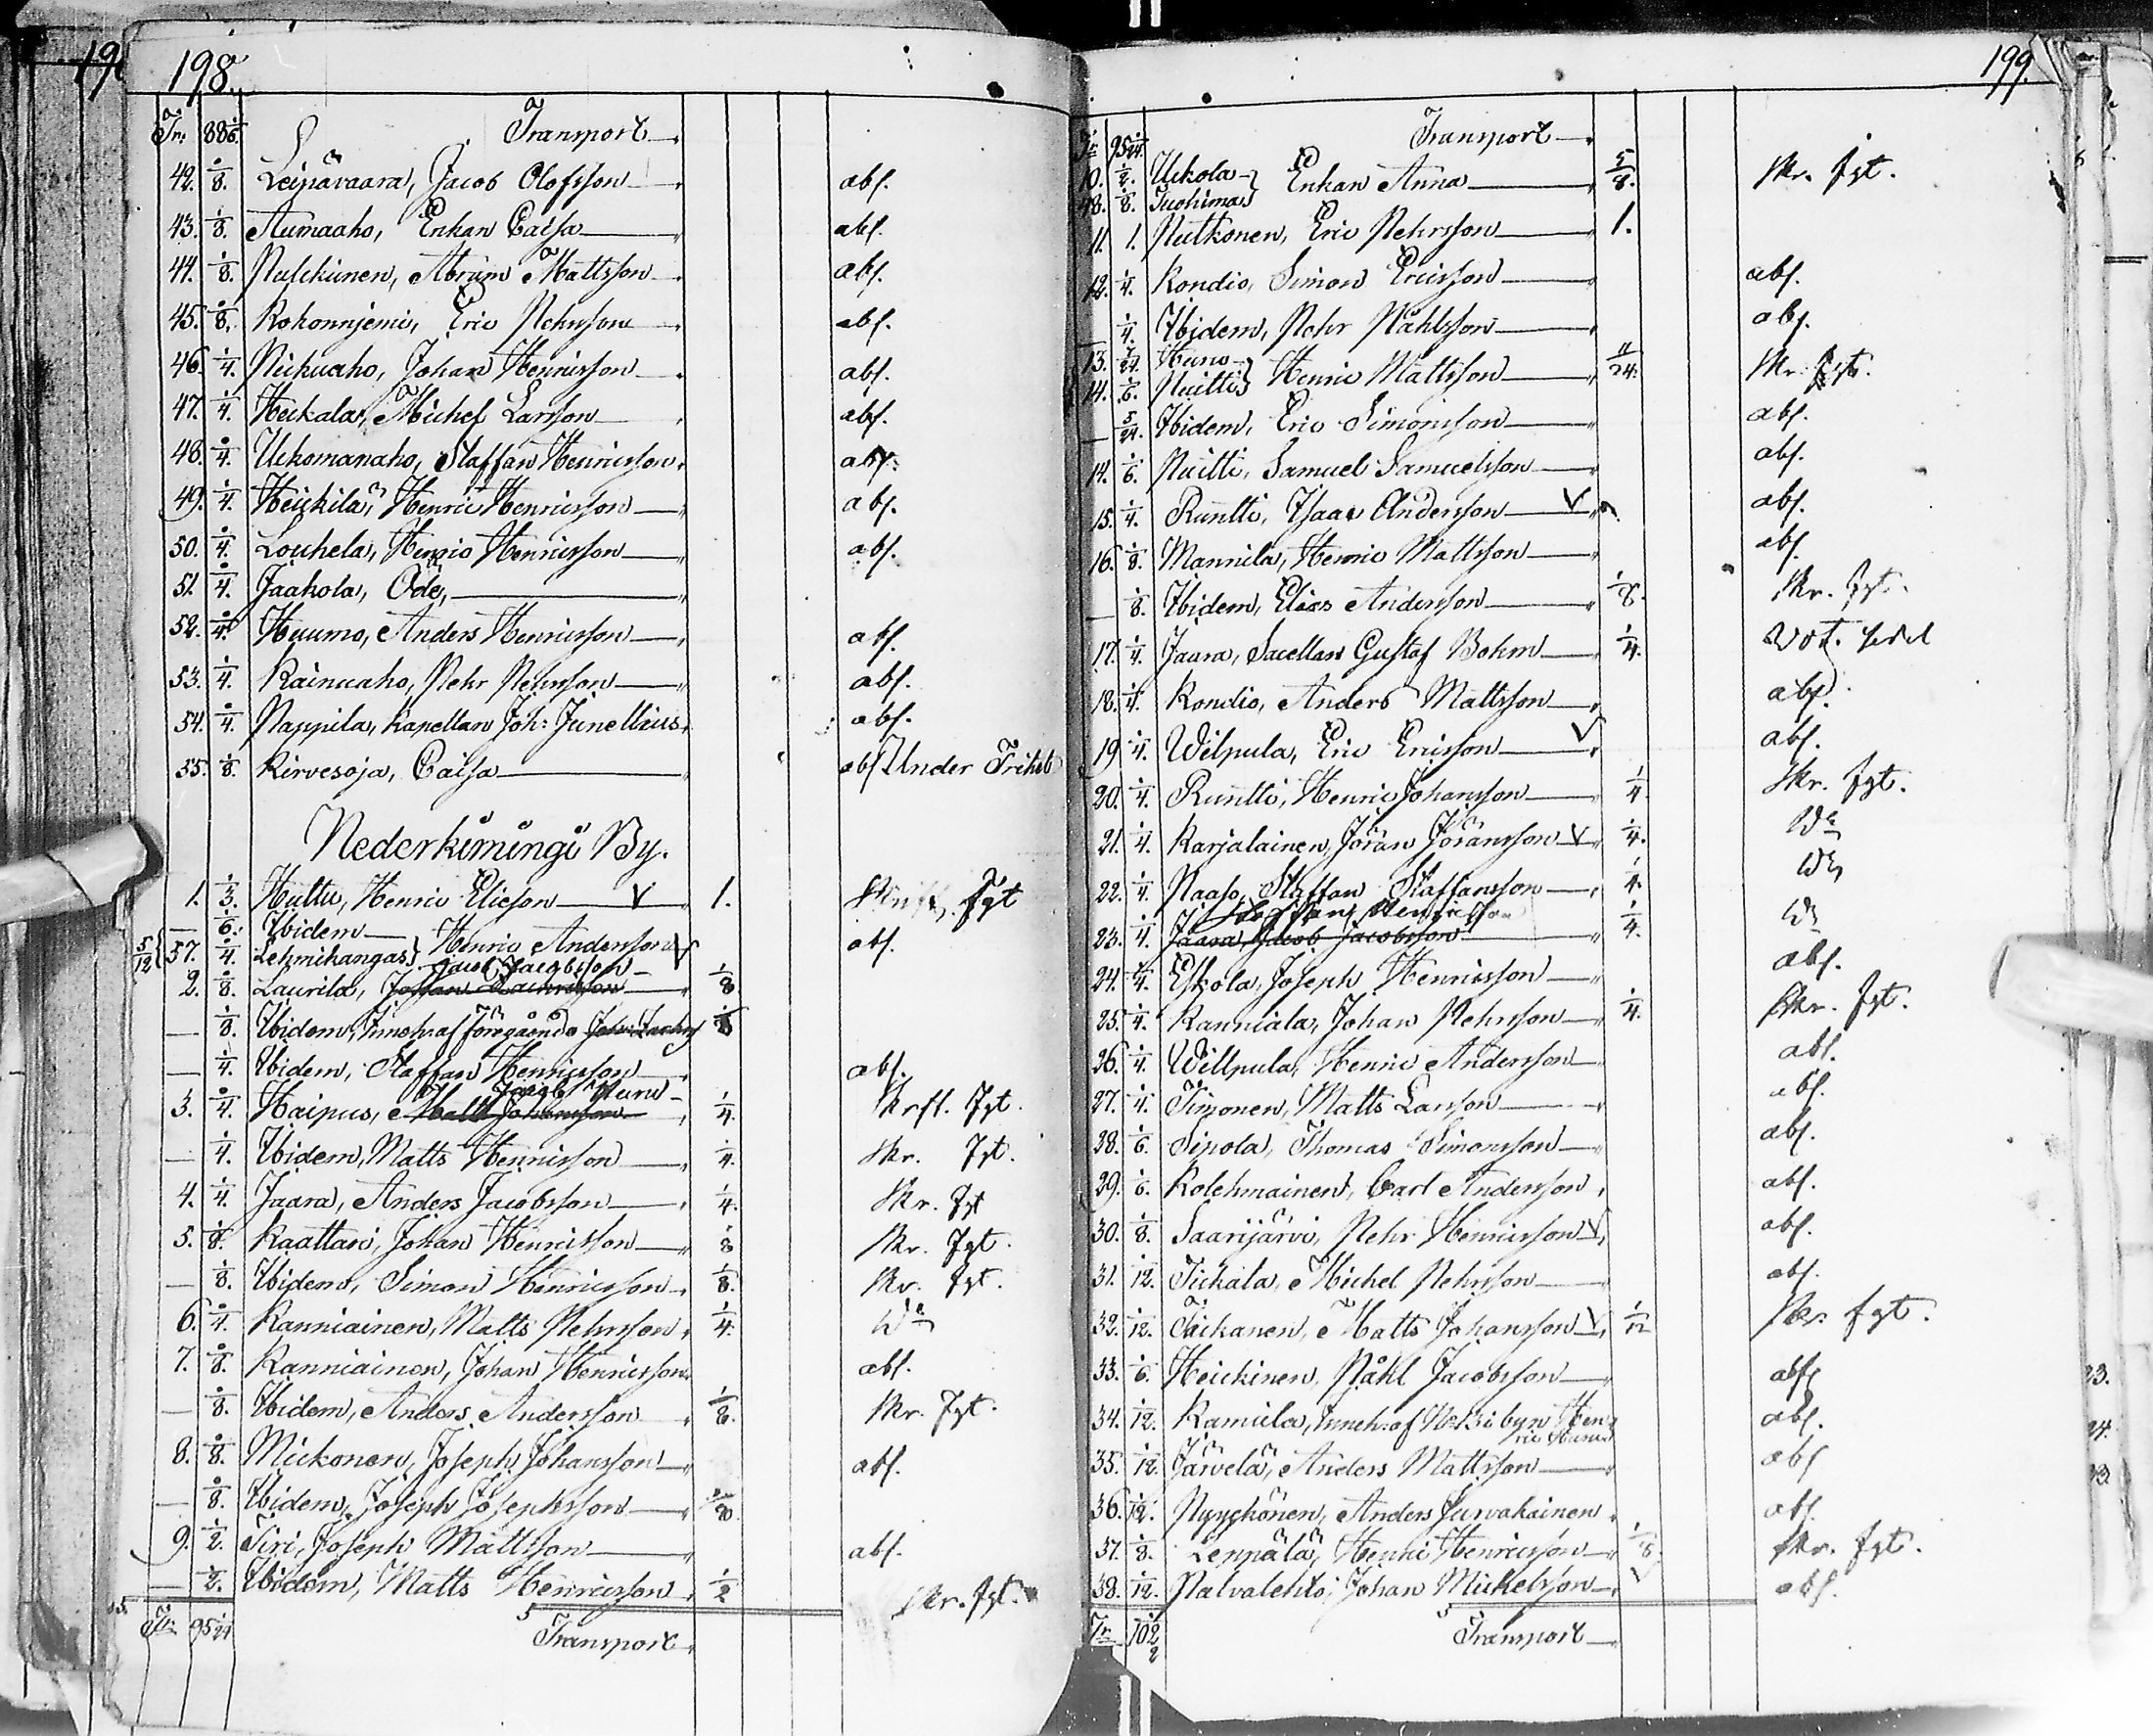 198.
Tr. 88 1/6. Transport
42. 1/8. Leipävaara, Jacob Olofsson abs.
43. 1/8. Aumaaho, Enkan Caisa abs.
44. 1/8. Pulckinen, Abram Mattsson abs.
45. 1/8. Kokonnjemi, Eric Pehrsson abs.
46. 1/4. Pickuaho, Johan Henricsson abs.
47. 1/4. Heikala, Michel Larsson abs.
48. 1/4. Uckomanaho, Staffan Henricsson abs.
49. 1/4. Heickilä, Henric Henricsson abs.
50. 1/4. Louhela, Henric Henricsson abs.
51. 1/4. Jaakola, Öde,
52. 1/4. Huumo, Anders Henricsson abs.
53. 1/4. Kainuaho, Pehr Pehrsson abs.
54. 1/4. Pappila, Kapellan Joh: Junellius abs.
55. 1/8. Kirvesoja, Caisa abs Under Frihet
Nederkimingi By.
1. 1/3. Huttu, Henric Elieson V 1. Skrift. fgt
— 1/6. Ibidem
5/12 { 57. 1/4. Lehmikangas } Henric Andersson V abs.
Jacob Jacobsson
2. 1/8. Laurila, Johan Laurisson 1/8
— 1/8. Ibidem, Inneh: af föregående
— 1/4. Ibidem, Staffan Henricsson abs.
Jacob Huru
3. 1/4. Haipus, Matts Johansson 1/4 Skrft. Fgt.
— 1/4. Ibidem, Matts Henricsson 1/4. Skr. Fgt.
4. 1/4. Jaara, Anders Jacobsson 1/4. Skr. Fgt
5. 1/8. Kaattari, Johan Henricsson 1/8 Skr. Fgt.
— 1/8. Ibidem, Simon Henricsson 1/8. Skr. Fgt.
6. 1/4. Kanniainen, Matts Pehrsson 1/4.
7. 1/8. Kanniainen, Johan Henricsson abs.
— 1/8. Ibidem, Anders Andersson 1/8. Skr. Fgt.
8. 1/8. Mickonen, Joseph Johansson abs.
— 1/8. Ibidem, Joseph Josephsson
9. 1/2. Siri, Joseph Mattsson abs.
— 1/2. Ibidem, Matts Henricsson 1/2 Skr. Fgt.
Tr. 95 1/24 Transport
199.
Tr. 95 1/24. Transport
10. 1/2. Uckola
48. 1/8. Tuohimaa } Enkan Anna 5/8. Skr. fgt.
11. 1. Putkonen, Eric Pehrsson 1.
12. 1/4. Kondio, Simon Ericsson abs.
1/4. Ibidem, Pehr Påhlsson abs.
13. 7/24. Huru
14. 1/6. Puitti } Henric Mattsson 11/24. Skr. Fgt.
— 5/24. Ibidem, Eric Simonsson abs.
14. 1/6. Puitti, Samuel Samuelsson abs.
15. 1/4. Runtti, Isaac Andersson V abs.
16. 1/8. Mannila, Henric Mattsson abs.
— 1/8. Ibidem, Elias Andersson 1/8. Skr. fgt.
17. 1/4. Jaara, Sacellan Gustaf Bohm 1/4.
18. 1/4. Kondio, Anders Mattsson abs.
19 1/4. Wilpula, Eric Ericsson V abs.
20. 1/4. Runtti, Henric Johansson 1/4. Skr. fgt.
21. 1/4. Karjalainen, Jöran Jöransson V 1/4.
22. 1/4. Paaso, Staffan Staffansson 1/4.
Staffan Henricsson
23. 1/4. Jaara, Jacob Jacobsson 1/4.
24. 1/4. Eskola, Joseph Henricsson abs.
25. 1/4. Kanniala, Johan Pehrsson 1/4. Skr. fgt.
26. 1/4. Willpula, Henric Andersson abs.
27. 1/4. Timonen, Matts Larsson abs.
28. 1/6. Sipola, Thomas Simonsson abs.
29. 1/6. Kolehmainen, Carl Andersson abs.
30. 1/8. Saarijärvi, Pehr Henricsson V abs.
31. 1/12. Tickala, Michel Pehrsson abs.
32. 1/12. Täckänen, Matts Johansson V 1/12 Skr. fgt.
33. 1/6. Heickinen, Påhl Jacobsson abs.
34. 1/12. Kamula, Inneh: af No 13 i byn Hen-
ric Huru abs.
35. 1/12. Järvelä, Anders Mattsson abs
36. 1/12. Nyyckönen, Anders Jurvakainen abs.
37. 1/8. Leppälä, Henric Henricsson 1/8. Skr. fgt.
38. 1/12. Palvalehto, Johan Mickelsson V abs.
Tr. 102 1/2 Transport